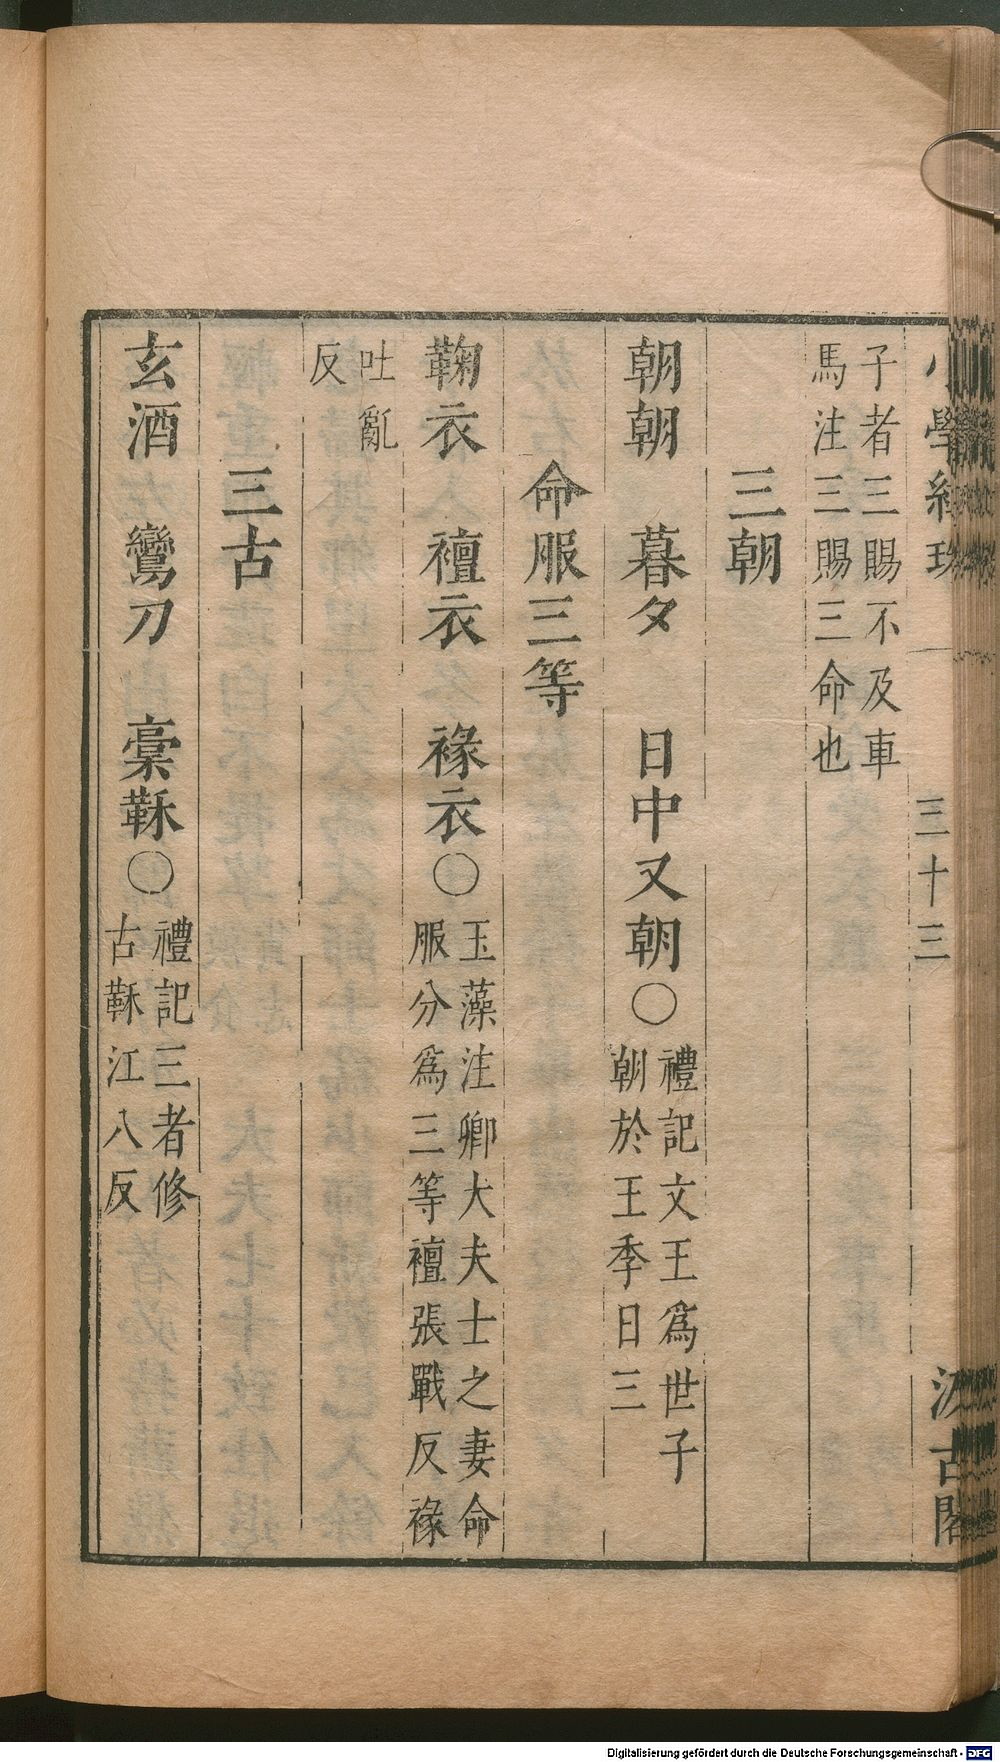 子者三賜不及車
馬注三賜三命也
三朝
朝朝 暮夕 日中又朝〇
禮記文王爲世子
朝於王季日三
命服三等
鞠衣 襢衣 褖衣〇
玉藻注卿大夫士之妻命
服分爲三等襢張戰反褖
吐亂
反
三古
玄酒 鸞刀 稾鞂〇
禮記三者修
古鞂江八反
三十三
Digitalisierung gefördert durch die Deutsche Forschungsgemeinschaft - DFG